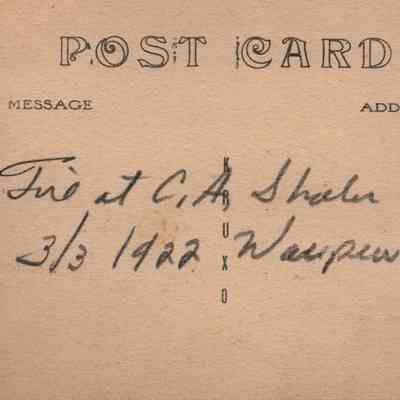 POST CARD
MESSAGE
ADD
Fire at C. A. Shaler
3/3 1922 Waupun
KRUXO